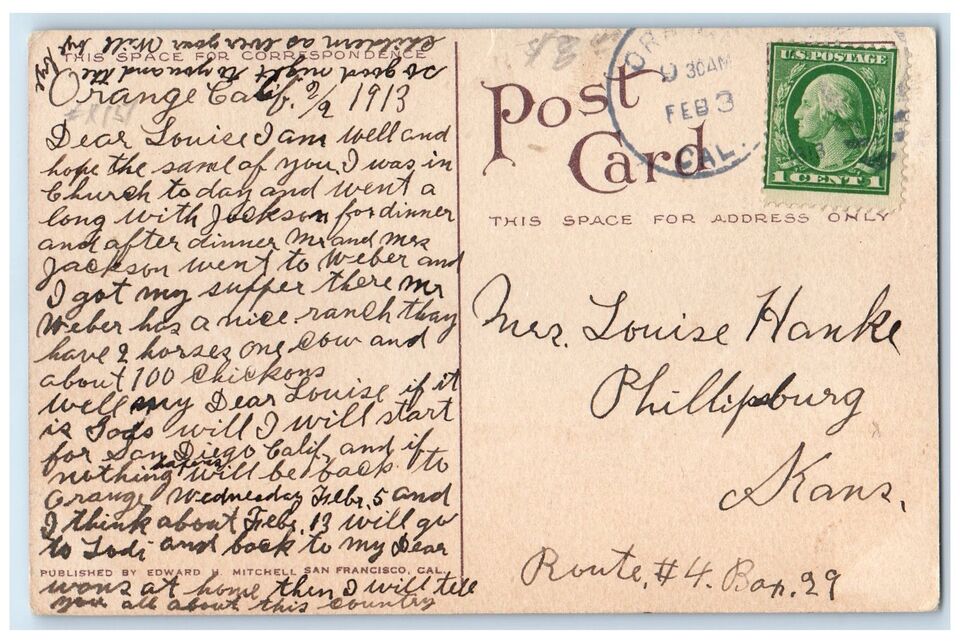 THIS SPACE FOR CORRESPONDENCE
Orange Calif. 2/2 1913
Dear Louise I am well and
hope the same of you, I was in
Church to day and went a
long with Jackson for dinner
and after dinner Mr and Mrs
Jackson went to Weber and
I got my supper there Mr
Weber has a nice ranch thay
have 2 horses one cow and
about 100 Chickons
well my Dear Louise if it
is Gods will I will start
for San Diego Calif, and if
nothing hapens will be back to
Orange Wednesday Febr. 5 and
I think about Febr. 13 will go
to Lodi and back to my Dear
PUBLISHED BY EDWARD H. MITCHELL SAN FRANCISCO, CAL.
wons at home then I will tell
you all about this country
so good night to you and the
children as ever your Will by
bye
Post
Card
THIS SPACE FOR ADDRESS ONLY
930AM
FEB 3
CAL.
U.S. POSTAGE
1 CENT 1
Mrs. Louise Hanke
Phillipsburg
Kans.
Route, #4. Box. 29